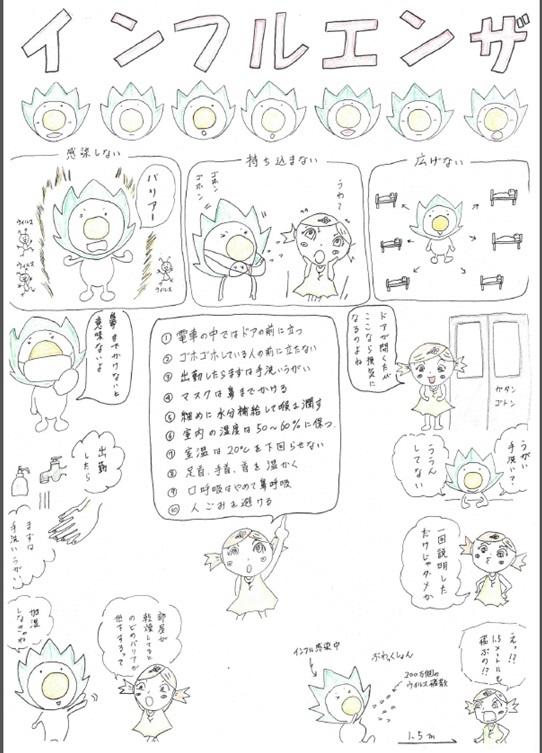 インフルエンザ
感染しない
持ち込まない
広げない
バリアー
ウイルス
ウイルス
ウイルス
ゴホン
ゴホン
うわぁ
鼻までかけないと
意味ないよ
① 電車の中ではドアの前に立つ
② ゴホゴホしている人の前に立たない
③ 出勤したらまずは手洗いうがい
④ マスクは鼻までかける
⑤ 細めに水分補給して喉を潤す
⑥ 室内の湿度は50〜60%に保つ
⑦ 室温は20℃を下回らせない
⑧ 足首、手首、首を温かく
⑨ 口呼吸はやめて鼻呼吸
⑩ 人ごみを避ける
ドアが開くたび
ここなら換気に
なるのよね
ガタン
ゴトン
出勤
したら
まずは
手洗いうがい
うがい
手洗い?
ううん
してない
一回説明した
だけじゃダメか
加湿
しなきゃね
部屋が
乾燥してると
のどのバリアが
低下するって
インフル感染中
ぶわっくしょん
200万個の
ウイルス拡散
1.5m
えっ!?
1.5メートルも
飛ぶの!?